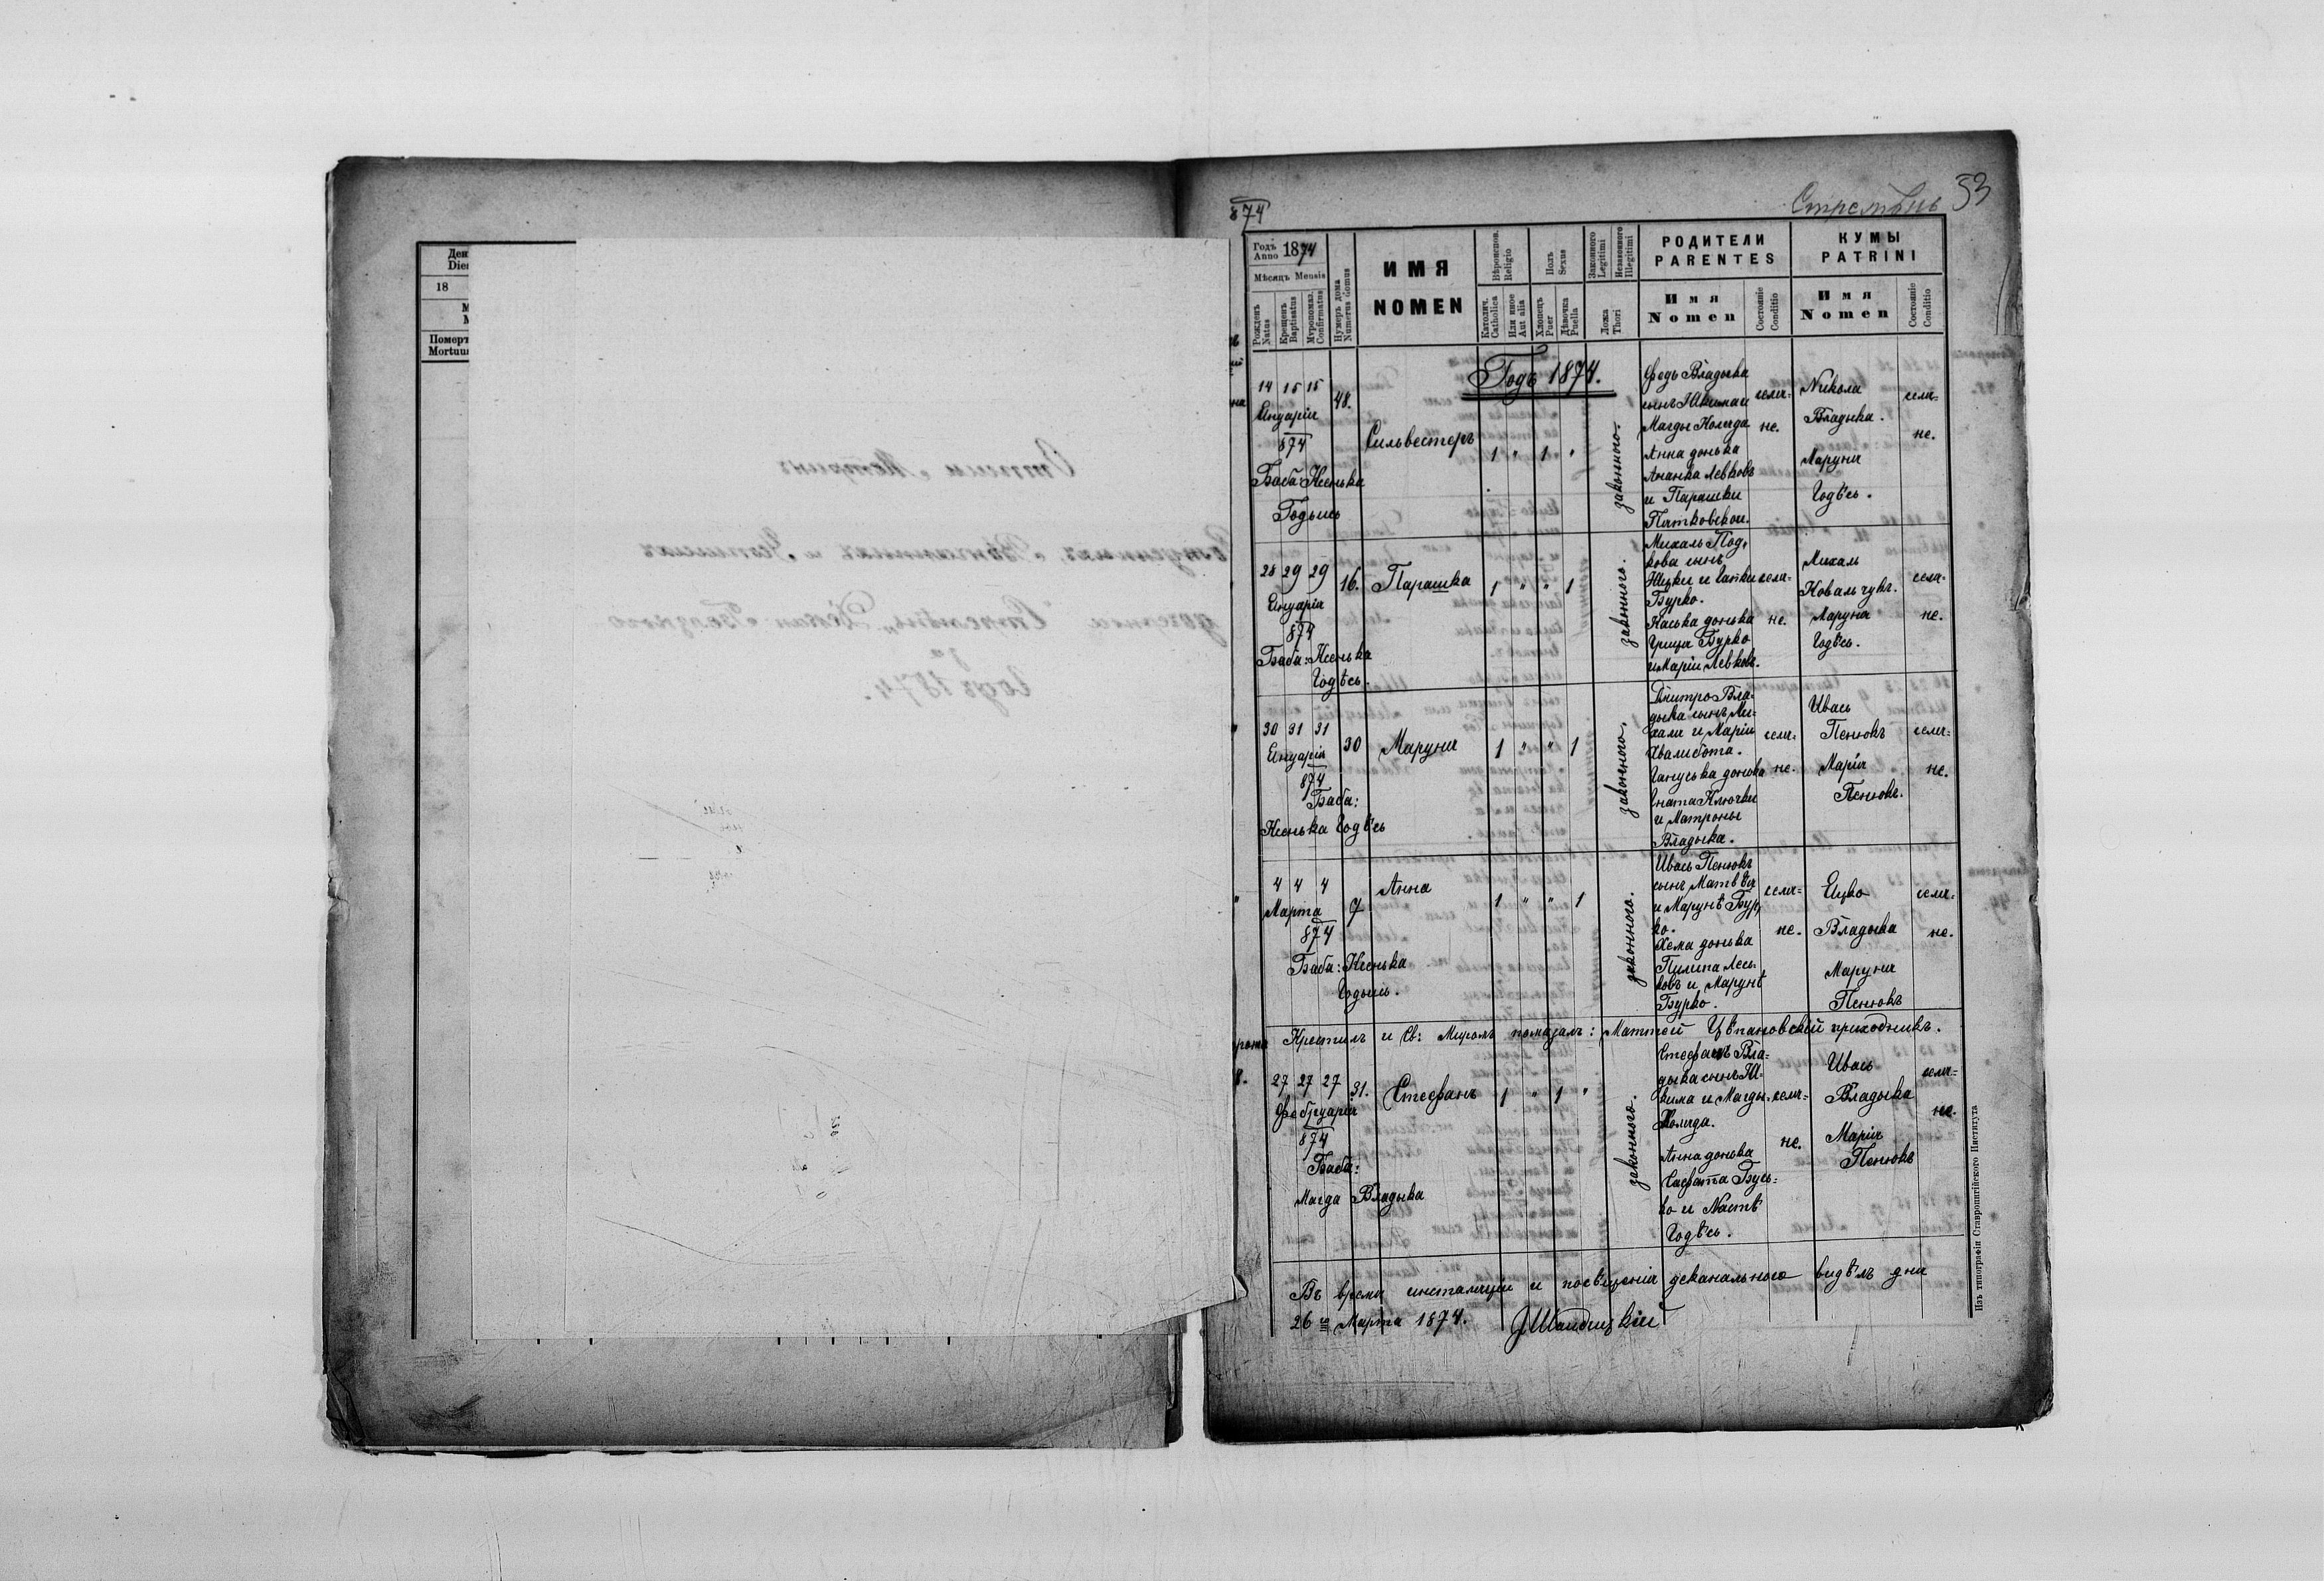 День
Dies
18
Померъ
Mortuus
874
Стрептѣвъ 53
Годъ
Anno 1874
Мѣсяцъ Mensis
Рожденъ
Natus
Крещенъ
Baptisatus
Мѵропомаз.
Confirmatus
Нумеръ дома
Numerus domus
ИМЯ
NOMEN
Вѣроиспов.
Religio
Католич.
Catholica
Или иное
Aut alia
Полъ
Sexus
Хлопець
Puer
Дѣвочка
Puella
Законного
Legitimi
Незаконного
Illegitimi
Ложа
Thori
РОДИТЕЛИ
PARENTES
Имя
Nomen
Состояніе
Conditio
КУМЫ
PATRINI
Имя
Nomen
Состояніе
Conditio
Годъ 1874.
14 15 15
Януарія
874
Баба: Ксенька
Годѣсь
48.
Сильвестеръ
1 " 1 "
законного.
Федь Владыка
сынъ Якима и
Магды Коляда
Анна донька
Ананка Левковъ
и Парашки
Пятковской.
селя=
не.
Никола
Владыка.
Маруня
Годѣсь.
селя=
не.
28 29 29
Януарія
874
Баба: Ксенька
Годѣсь.
16.
Парашка
1 " " 1
законного.
Михаль Под,
кова сынъ
Яцки и Гапки
Бурко.
Каська донька
Грица Бурко
и Маріи Левковъ.
селя=
не.
Михаль
Ковальчукъ.
Маруня
Годѣсь.
селя=
не.
30 31 31
Януарія
874
Баба:
Ксенька Годѣсь
30
Маруня
1 " " 1
законного.
Дмитро Вла=
дыка сынъ Ми=
хали и Маріи
Хвалибота.
Гануська донька
Игната Ключки
и Матроны
Владыка.
селя=
не.
Ивась
Пенюкъ
Марія
Пенюкъ.
селя=
не.
4 4 4
Марта
874
Баба: Ксенька
Годѣсь.
7
Анна
1 " " 1
законного.
Ивась Пенюкъ
сынъ Матвѣя
и Марунѣ Бур,
ко.
Хема донька
Пилипа Лесь=
ковъ и Марунѣ
Бурко.
селя=
не.
Яцко
Владыка
Маруня
Пенюкъ
селя=
не.
Крестилъ и Св: Миромъ помазалъ: Маттей Цѣпановскій приходникъ.
27 27 27
Фебруарія
874
Баба:
Магда Владыка
31.
Стефанъ
1 " 1 "
законного.
Стефанъ Вла=
дыка сынъ Я=
кима и Магды
Коляда.
Анна донька
Іосафата Бусь=
ко и Настѣ
Годѣсь.
селя=
не.
Ивась
Владыка
Марія
Пенюкъ
селя=
не.
Въ время инсталяціи и посѣщенія деканального видѣлъ дня
26 Марта 1874.
Изъ типографіи Ставропигійского Института